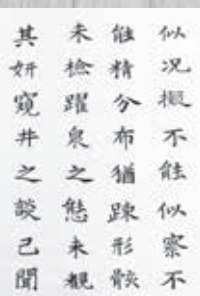 似况擬不能似察不
能精分布猶踈形骸
未檢躍泉之態未覩
其妍窺井之談已聞